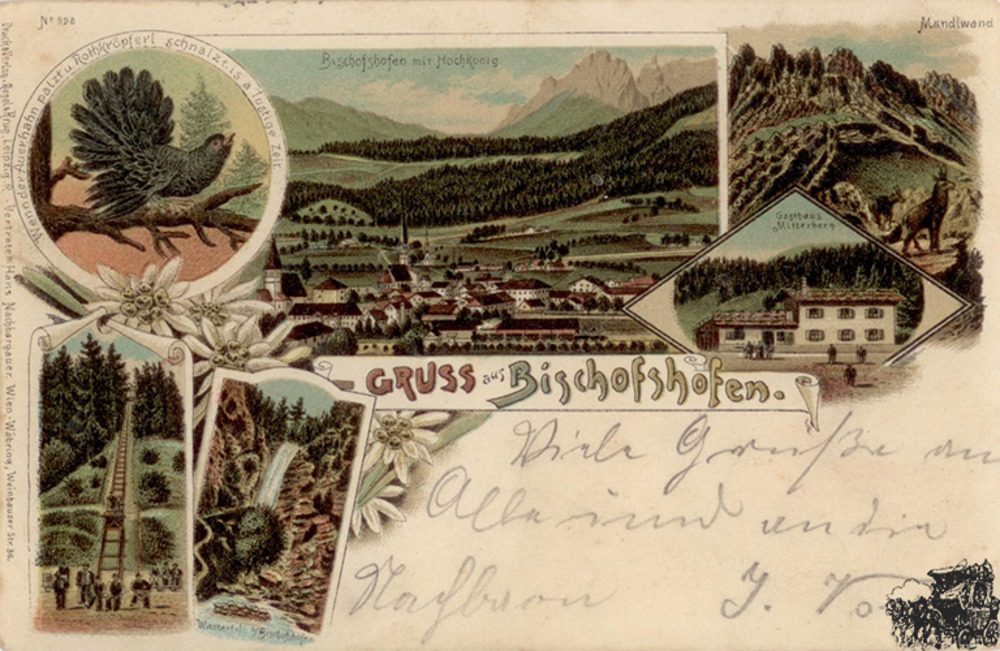 No 998
Mandlwand
Wenn der Auerhahn palzt u. Rothkröpferl schnalzt, is a lustige Zeit
Bischofshofen mit Hochkönig
Gasthaus
Mitterberg
GRUSS aus Bischofshofen.
Viele Grüße an
Alle und an die
Nachbarn J.
Wasserfall b/Bischofshofen
Druck u. Verlag. Regel & Krug, Leipzig R. - Vertreten Hans Nachbargauer, Wien-Währing, Weinhauser Str. 36.